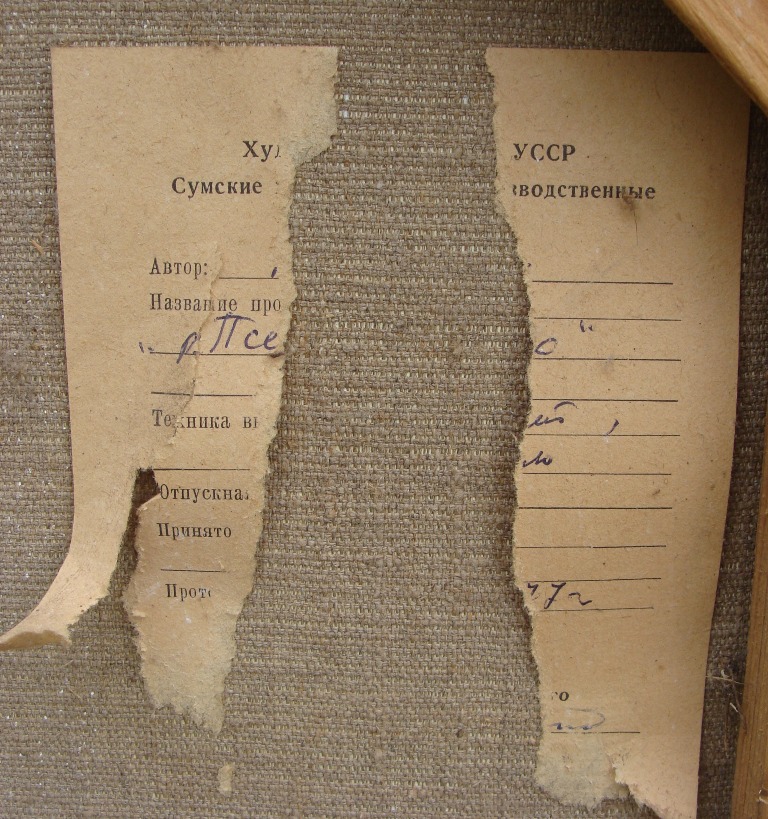 Ху УССР
Сумские зводственные
Автор:
Название про
„ р. Псе о "
Техника вы
ло
Отпускная
Принято
Прото 77 г
го